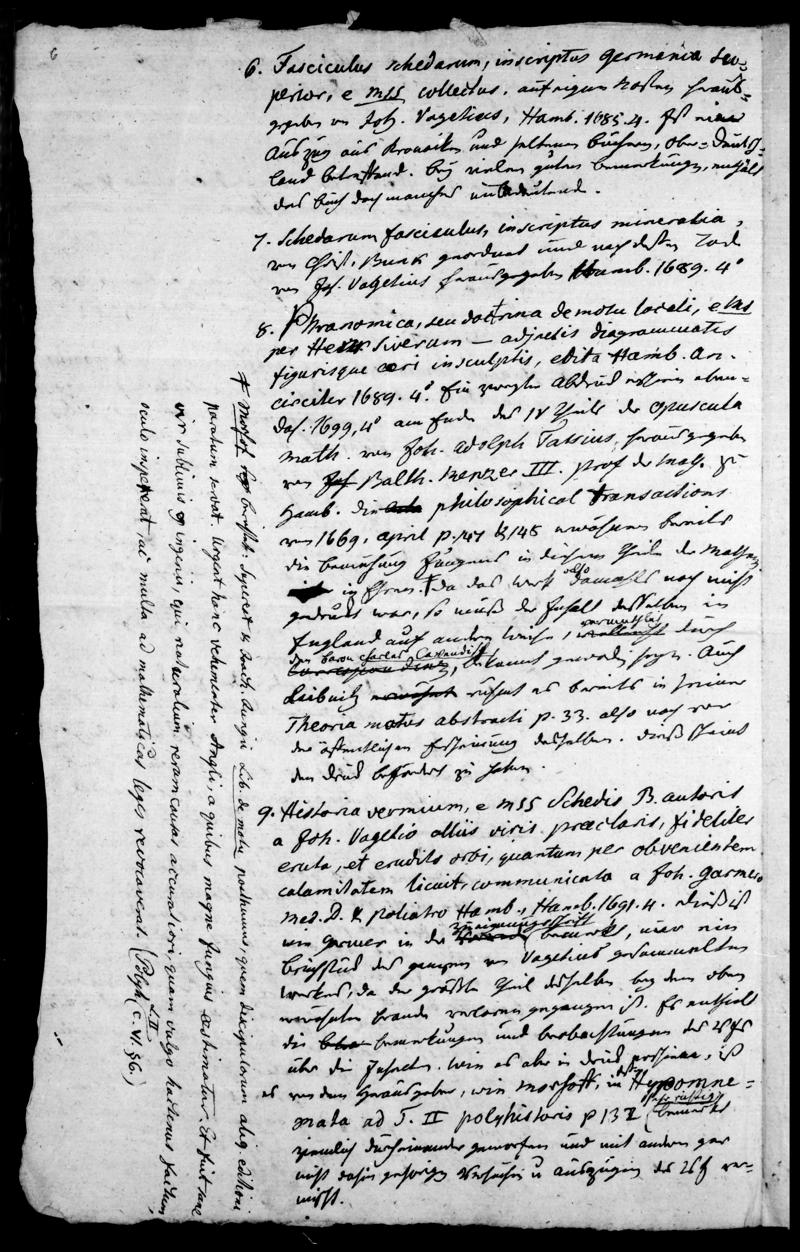 6
6. Fasciculus schedarum, inscriptus Germania su=
perior, e mss collectus. auf eigne Kosten heraus=
gegeben von Joh. Vagetius, Hamb. 1685. 4. Ist ein
Auszug aus Kroniken und seltenen Büchern, Ober=Deutsch=
land betreffend. bey vielen guten bemerkungen, enthält
das buch doch manches unbedeutende.
7. Schedarum fasciculus, inscriptus mineralia,
von Christ. Bunk geordnet und nach dessen Tod
von Joh. Vagetius herausgegeben Hamb. 1689. 4°
8. Phranomica, seu doctrina de motu locali, e mss
per Henr. Siverum — adjectis diagrammatis
figurisque aeri insculptis, edita Hamb. an.
circiter 1689. 4°. Ein zweyter Abdruck erschien eben=
das. 1699, 4° am Ende des Theils der opuscula
math. von Joh. Adolph Tassius, herausgegeben
von Balth. Menzer III. prof der Math. zu
Hamb. die philosophical transactions
von 1669. april p. 147 & 148 erwähnen bereits
die bemühung Jungens in diesem Theile der Mathem.
in Ehren. † da das Werk also damahls noch nicht
gedruckt war, so muß der Inhalt desselben in
England auf andere Weise, vermuthlich durch
den baron Charles Cavendish, bekannt geworden seyn. Auch
Leibnitz rühmt es bereits in seiner
Theoria motus abstracti p. 33. also noch vor
der öffentlichen Erscheinung desselben. dieß scheint
den druck befördert zu haben.
9. Historia vermium, e mss Schedis B. autoris
a Joh. Vagetio aliis viris praeclaris, fideliter
eruta, et erudito orbi, quantum per obvenientem
calamitatem licuit, communicata a Joh. Garmers
Med. D. & poliatro Hamb., Hamb. 1691. 4. dieß ist
wie Garmer in der Zueignungsschrift bemerkt, nur ein
bruchstück des ganzen von Vagetius gesammelten
Werkes, da der größte Theil desselben bey dem oben
erwähnten brande verloren gegangen ist. Es enthielt
die bemerkungen und beobachtungen des Vfs
über die Insecten. wie es aber in druck erschienen, ist
es von dem Herausgeber, wie Morhoff, in den Hypomne=
mata ad T. II polyhistoris p 132 sehr richtig bemerkt
ziemlich durcheinander geworfen und mit andern gar
nicht dahin gehörigen Versuchen u auszügen des Vfs ver=
mischt.
† Morhof Superest & Joach. Jungii Lib. de motu posthumus, quem discipulorum aliq. editioni
paratum servat. Urgent hanc vehementer Angli, a quibus magne Jungius aestimatur. Et fuit sane
vir sublimis ingenii, qui naturalium rerum causas accuratiori, quam vulgo hactenus factum,
oculo inspexerit, ac multa ad mathematicas leges revocaverat. (Polyh. L II c. VI. §6.)